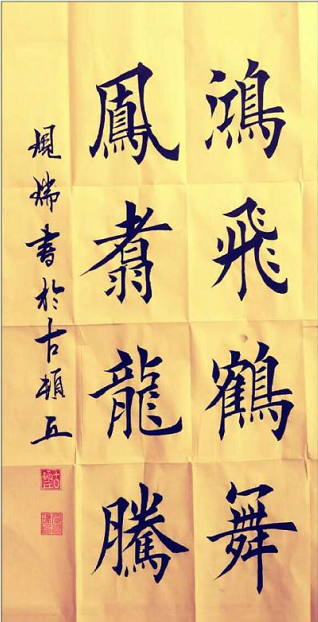 鴻飛鶴舞
鳳翥龍騰
瑞書於古頓丘